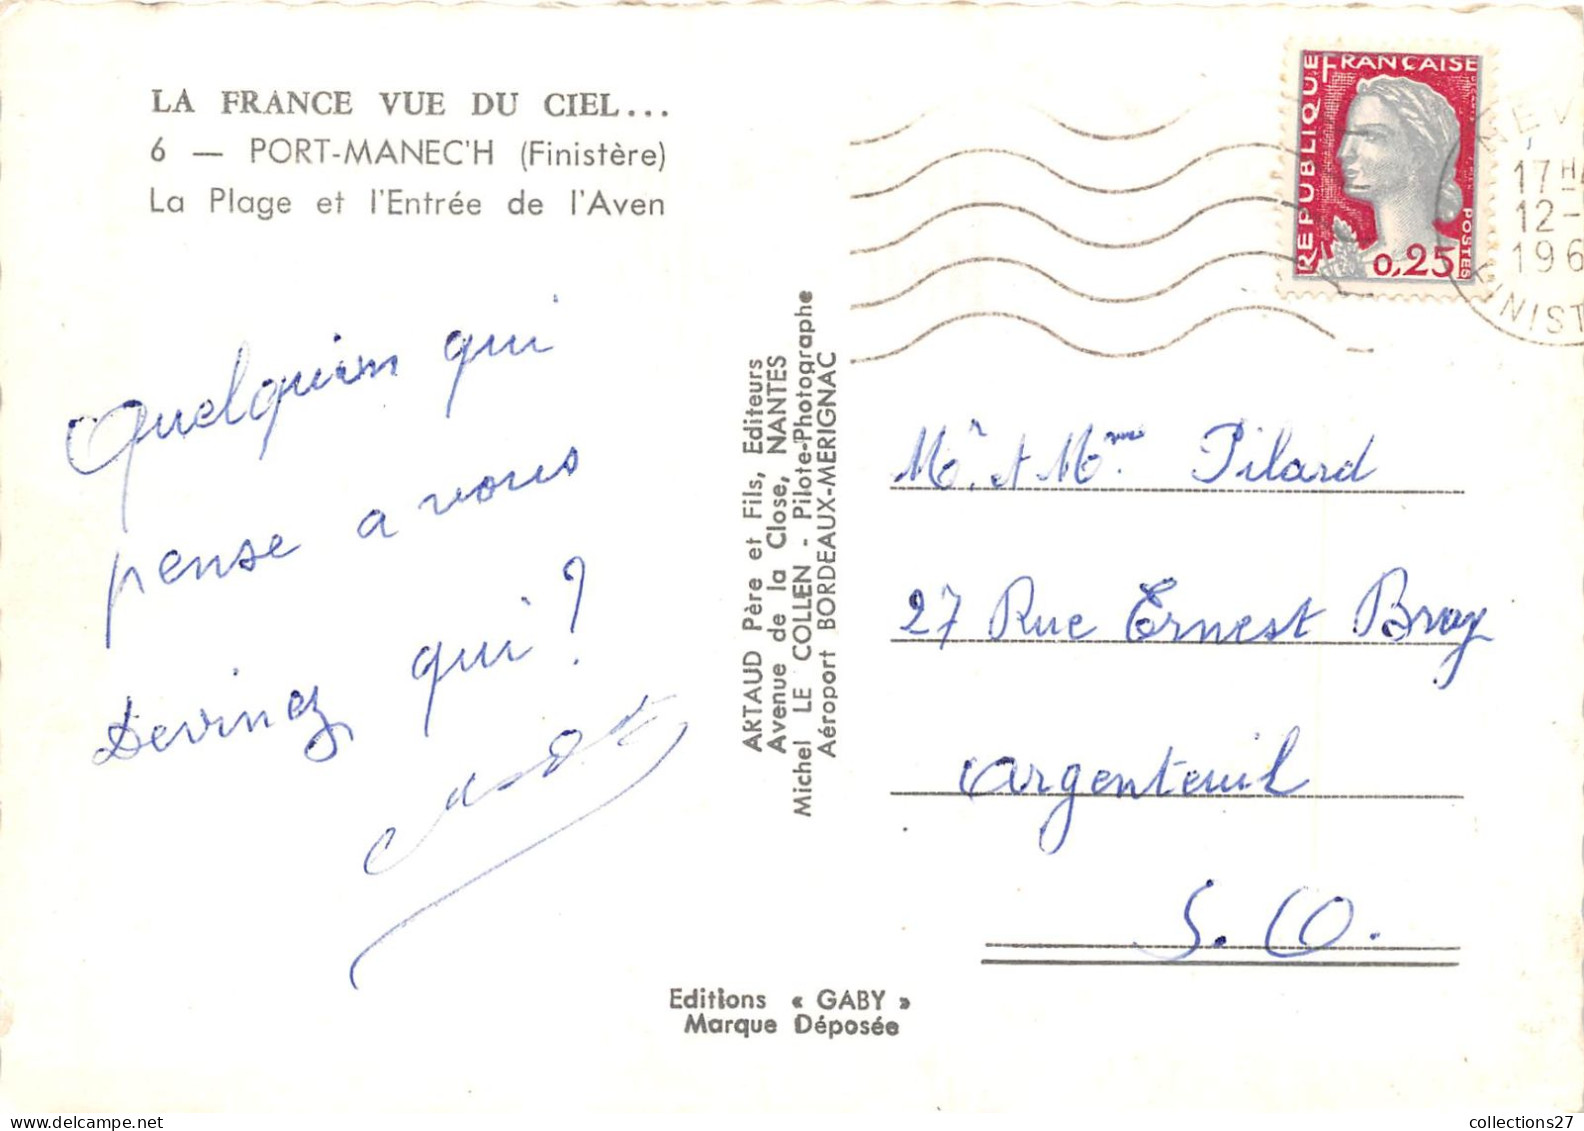 LA FRANCE VUE DU CIEL...
6 — PORT-MANEC'H (Finistère)
La Plage et l'Entrée de l'Aven
Quelqu'un qui
pense a vous
Devinez qui ?
ARTAUD Père et Fils, Editeurs
Avenue de la Close, NANTES
Michel LE COLLEN - Pilote-Photographe
Aéroport BORDEAUX-MERIGNAC
Editions « GABY »
Marque Déposée
REPUBLIQUE FRANÇAISE
POSTES
0,25
17 H
12-
196
INIST
Mr. et Mme. Pilard
27 Rue Ernest Bray
Argenteuil
S. O.
collections27